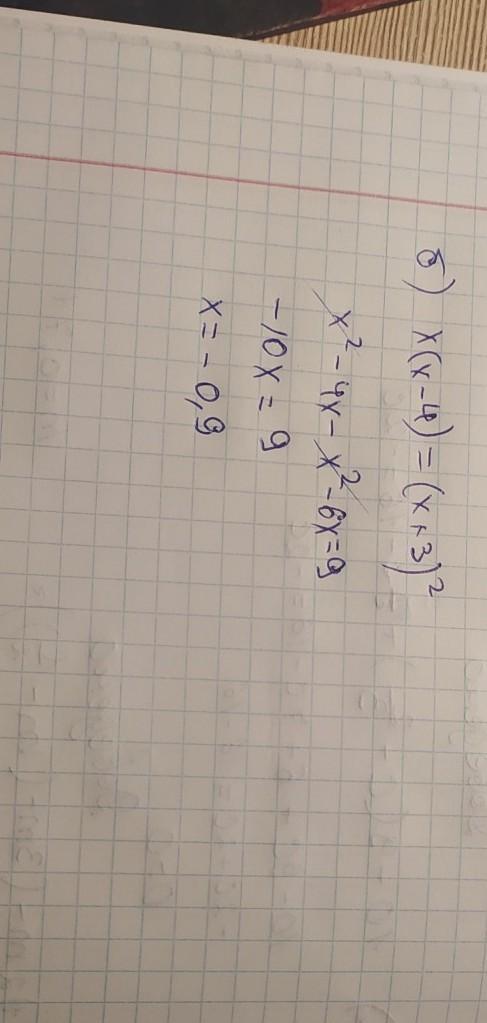 б) x(x-4)=(x+3)²
x²-4x-x²-6x=9
-10x=9
x=-0,9